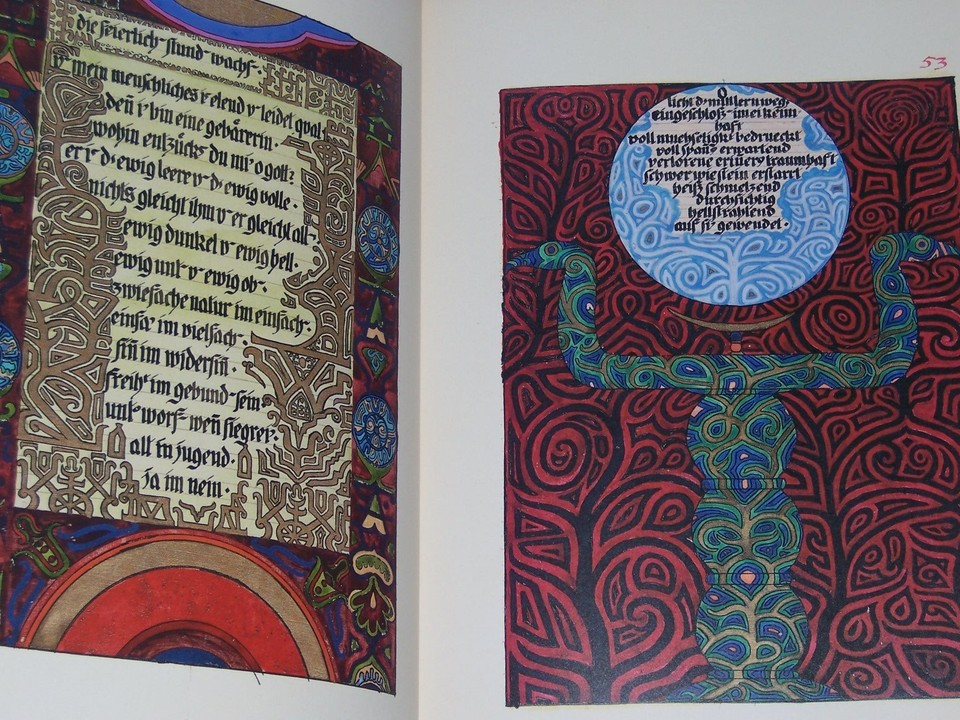 die feierlich stund wachs.
v mein menschliches v elend v leidet qual.
deñ i bin eine gebärerin.
wohin entzückst du mi o gott?
er i d ewig leere v d ewig volle.
nichts gleicht ihm v er gleicht all.
ewig dunkel v ewig hell.
ewig unt v ewig ob.
zwiefache natur im einfach.
einfa im vielfach.
siñ im widersiñ.
freih im gebund sein.
unt worf weñ siegrei.
alt in jugend.
ja im nein.
53
O
licht d mittlern weg,
eingeschloß im ei keim
haft
voll mueheligk bedrueckt
voll span erwartend
verlorene eriner traumhaft
schwer wie stein erstarrt
heiß schmelzend
durchsichtig
hellstrahlend
auf si gewendet.